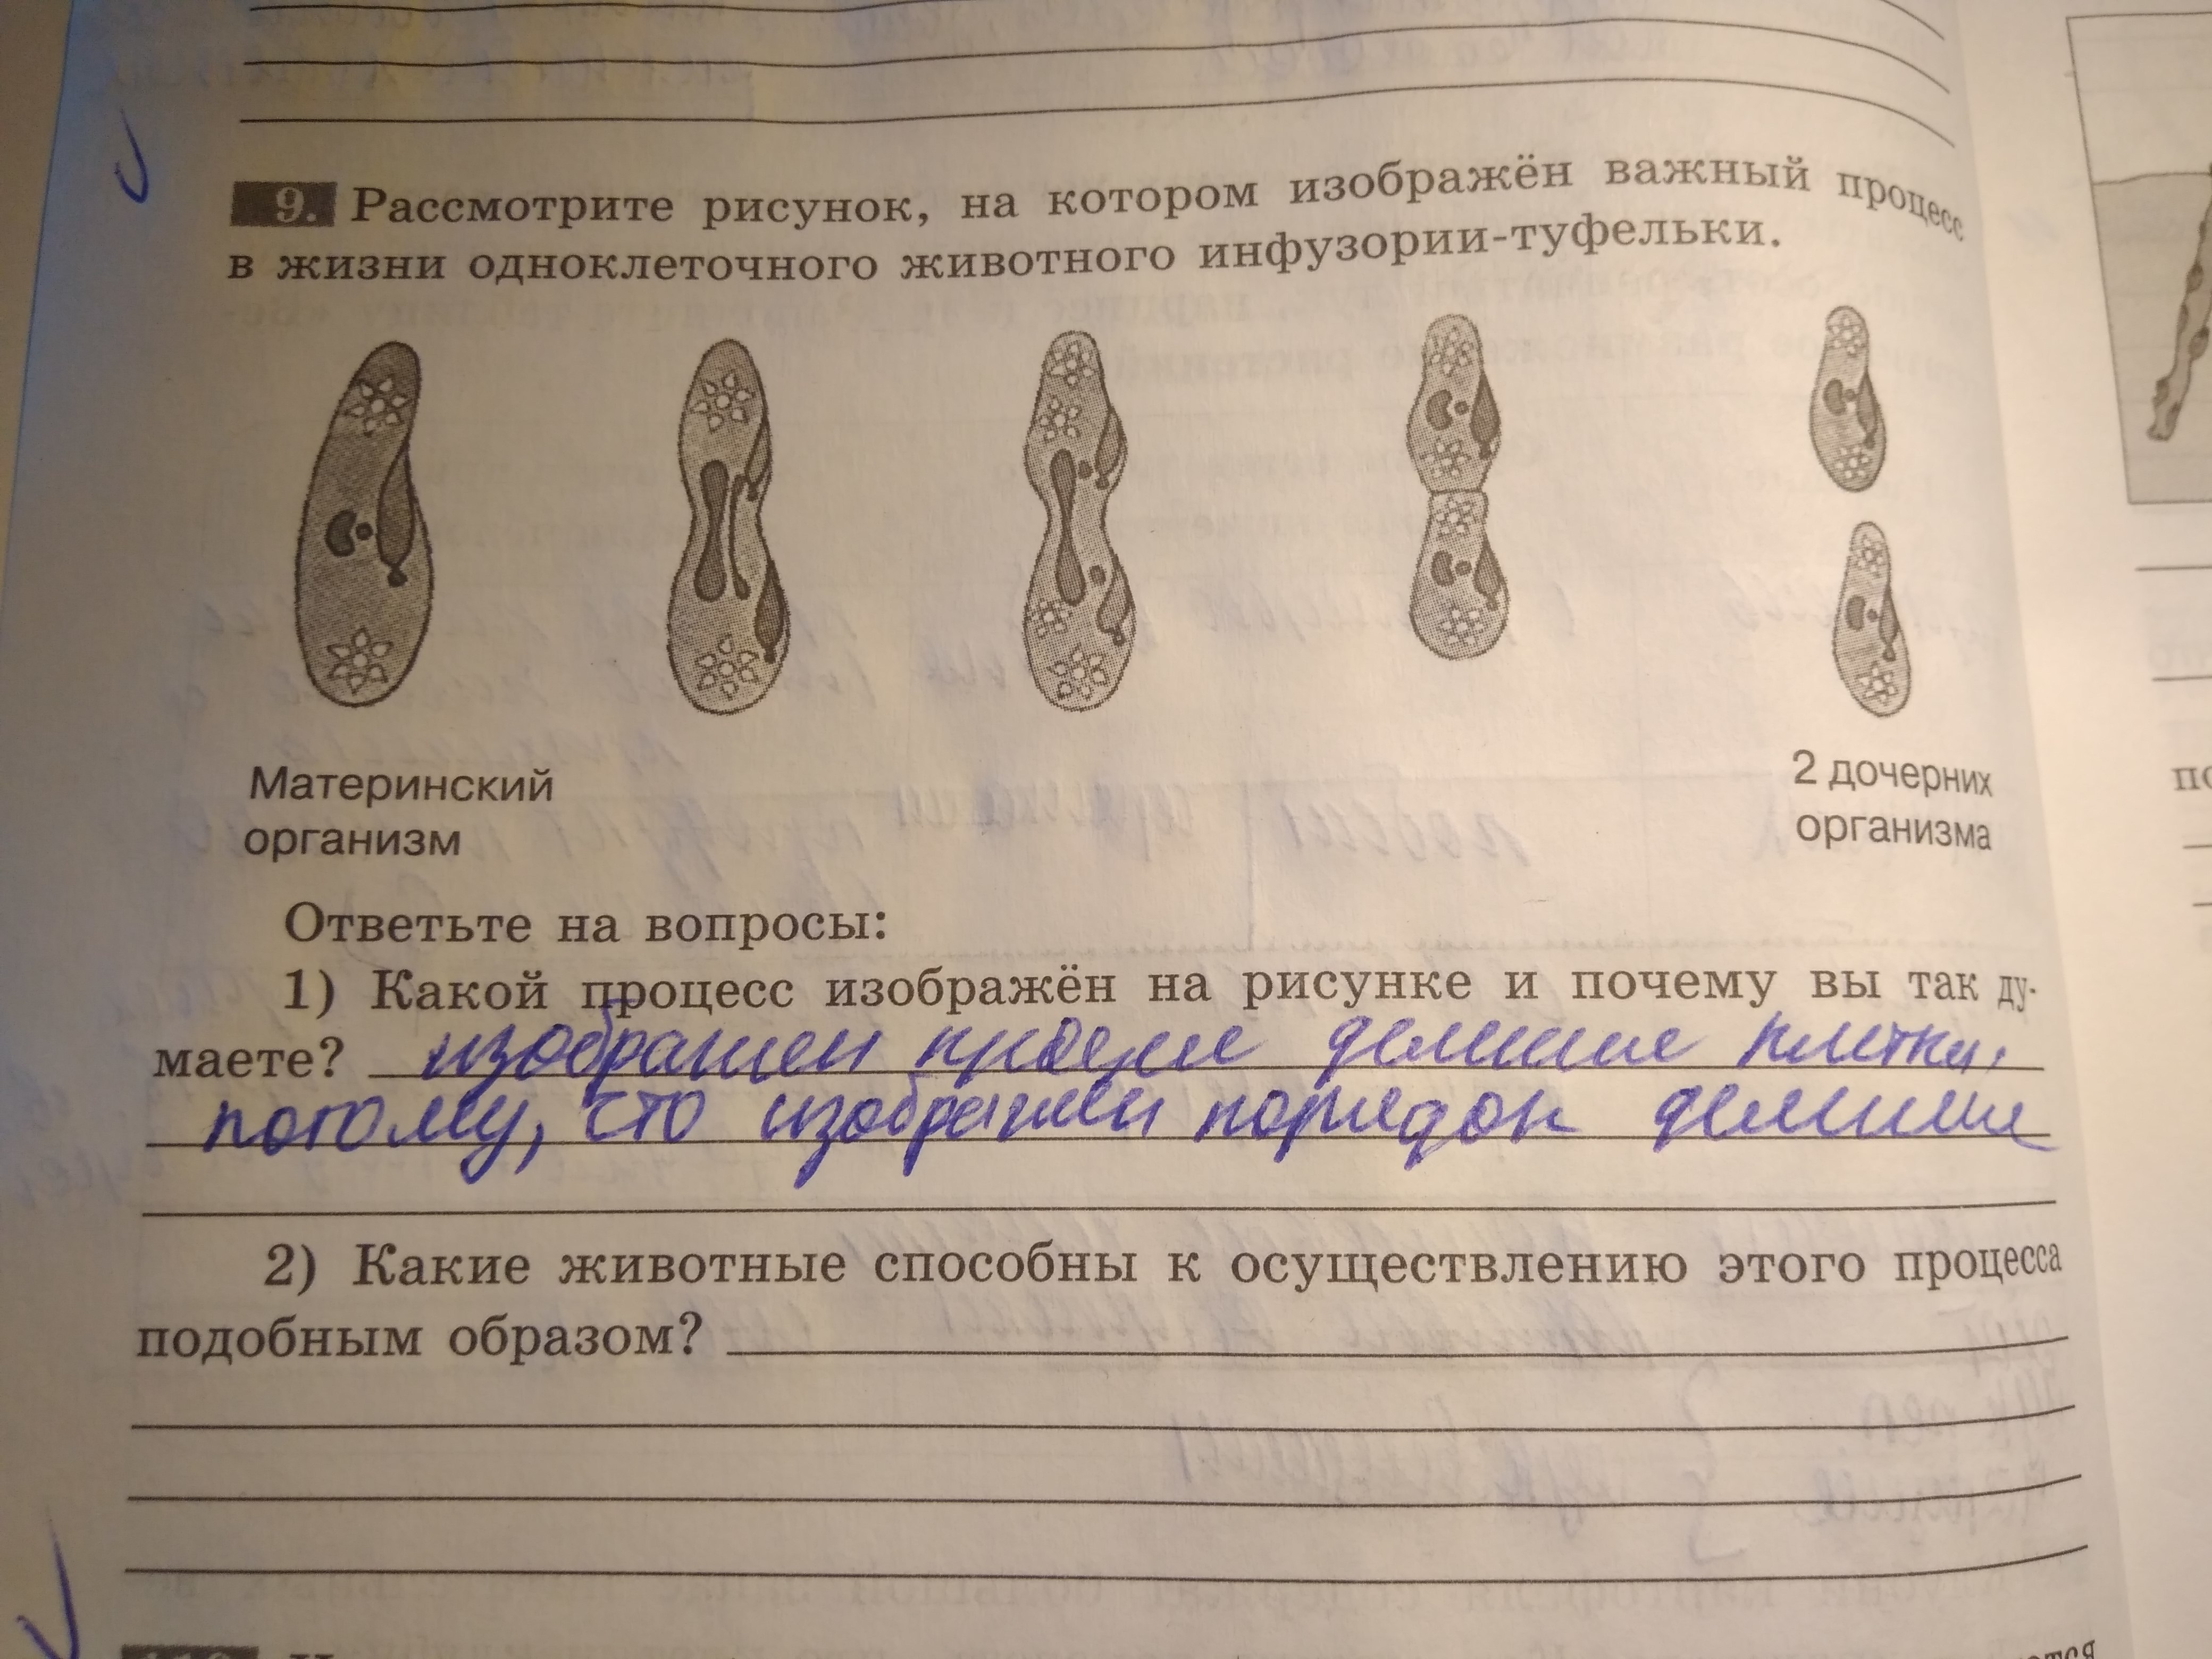 9. Рассмотрите рисунок, на котором изображён важный процесс
в жизни одноклеточного животного инфузории-туфельки.
Материнский
организм
2 дочерних
организма
Ответьте на вопросы:
1) Какой процесс изображён на рисунке и почему вы так ду-
маете? изображен процесс деление клетки,
потому, что изображен порядок деление
2) Какие животные способны к осуществлению этого процесса
подобным образом?